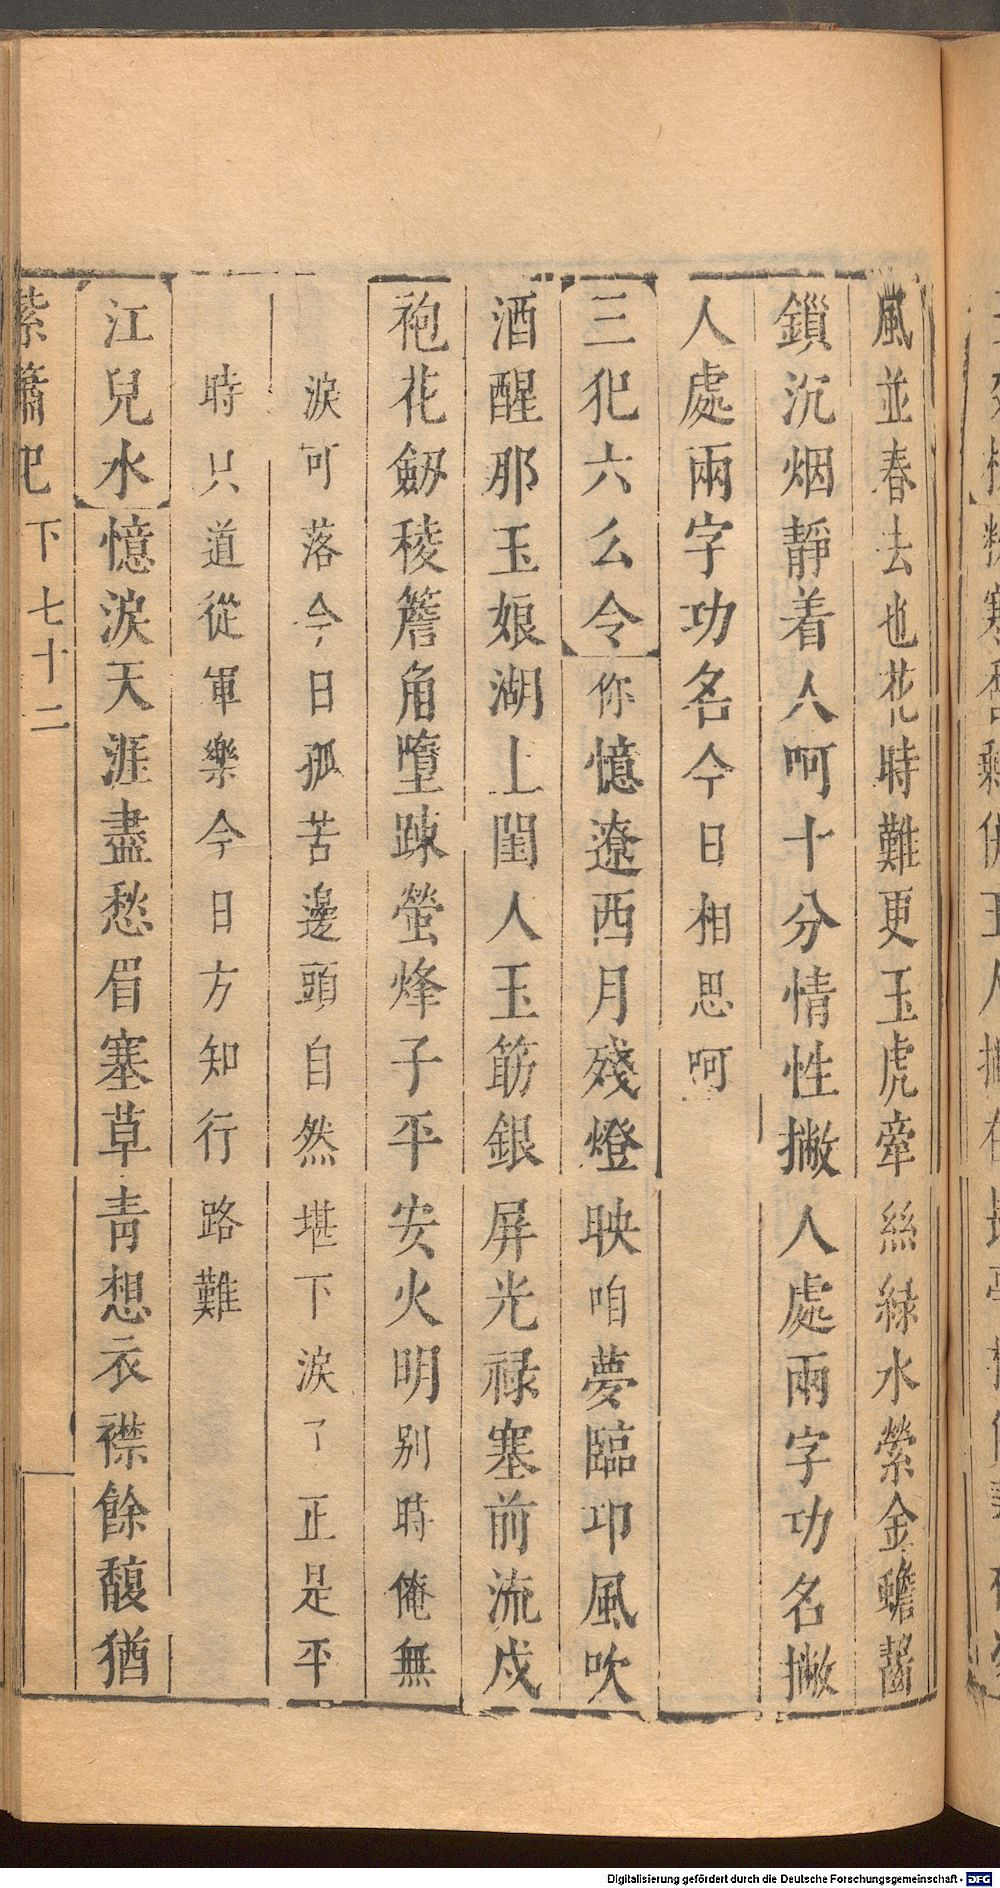 風並春去也花時難更玉虎牽絲綠水縈金蟾齧
鎻沉烟靜着人呵十分情性撇人處兩字功名撇
人處兩字功名今日相思呵
三犯六么令你憶遼西月殘燈映咱夢臨邛風吹
酒醒那玉娘湖上閨人玉筯銀屏光祿塞前流戍
袍花劒稜簷角墮踈螢烽子平安火明別時俺無
淚可落今日孤苦邊頭自然堪下淚了正是平
時只道從軍樂今日方知行路難
江兒水憶淚天涯盡愁眉塞草靑想衣襟餘馥猶
紫簫記 下 七十二
Digitalisierung gefördert durch die Deutsche Forschungsgemeinschaft - DFG